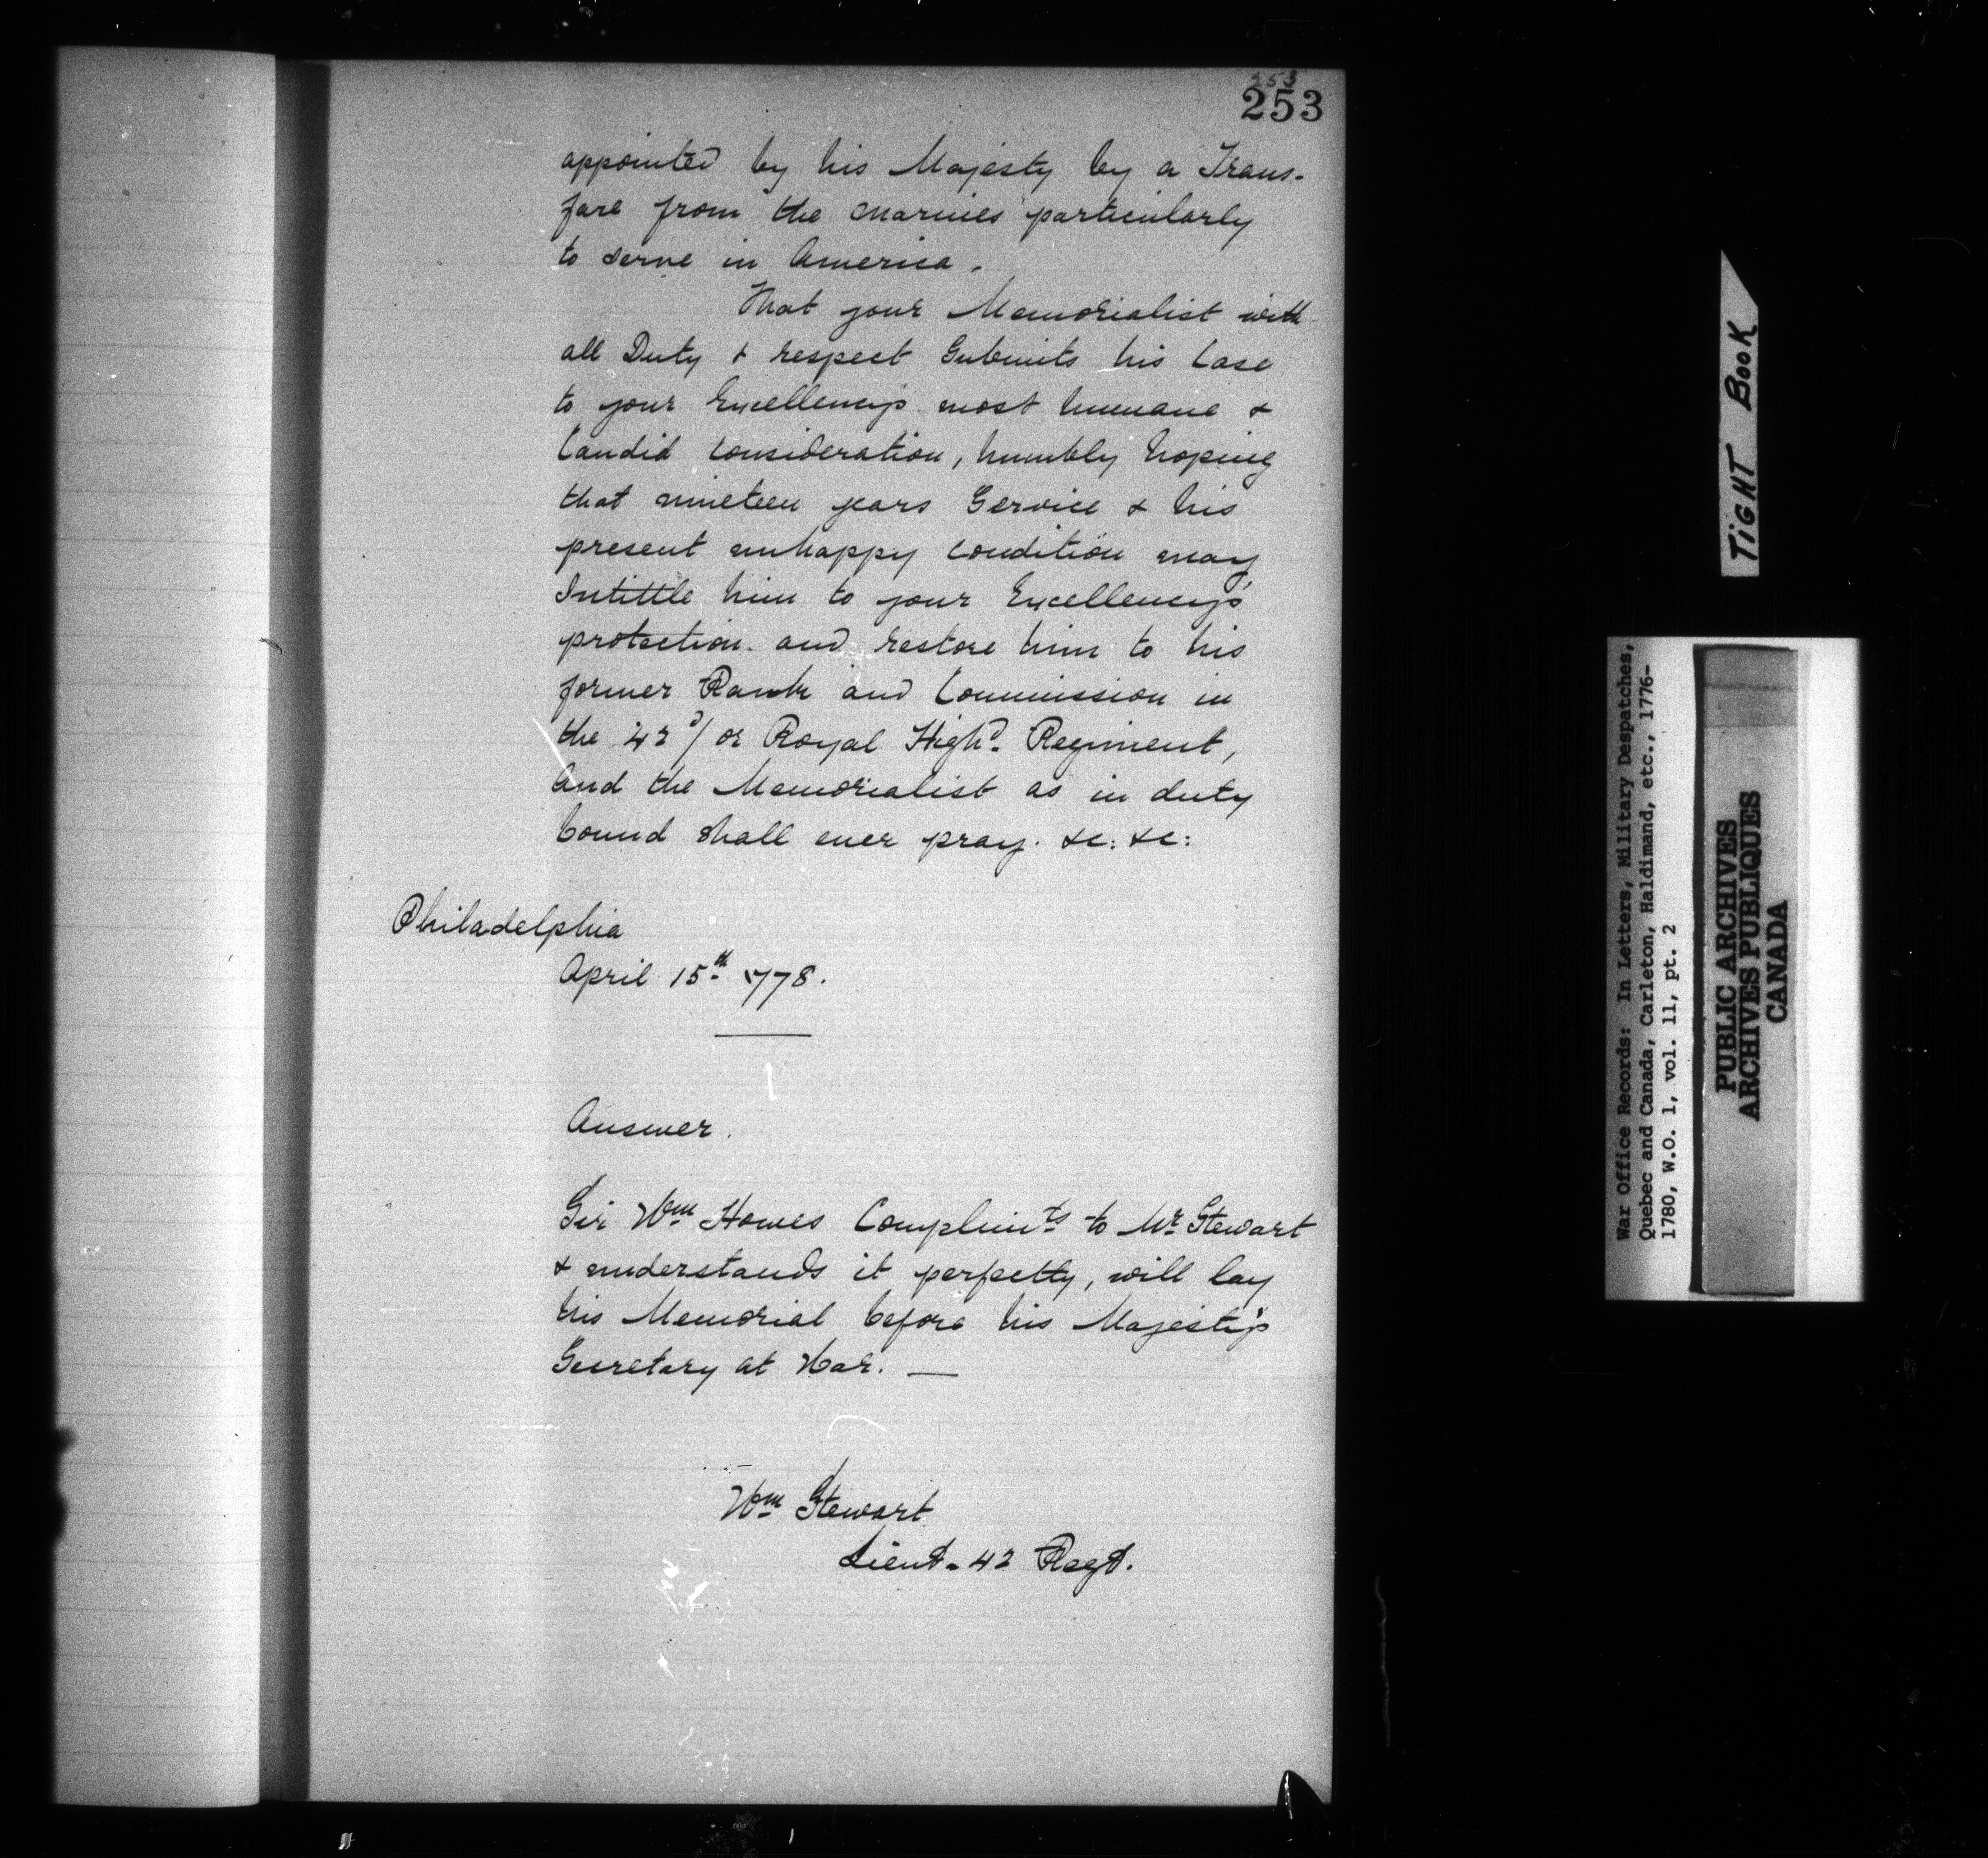 253
253
appointed by his Majesty by a Trans-
fare from the Marines particularly
to serve in America.
That your Memorialist with
all Duty & respect Submits his Case
to your Excellency's most humane &
Candid Consideration, humbly hoping
that nineteen years Service & his
present unhappy Condition may
Intittle him to your Excellency's
protection and restore him to his
former Rank and Commission in
the 42d/ or Royal Highd. Regiment,
And the Memorialist as in duty
bound shall ever pray. &c: &c:
Philadelphia
April 15th 1778.
Answer.
Sir Wm Howes Complimts to Mr Stewart
& understands it perfectly, will lay
his Memorial before his Majesty's
Secretary at War. —
Wm Stewart
Lieut. 42 Regt.
TIGHT BOOK
War Office Records: In Letters, Military Despatches,
Quebec and Canada, Carleton, Haldimand, etc., 1776-
1780, W.O. 1, vol. 11, pt. 2
PUBLIC ARCHIVES
ARCHIVES PUBLIQUES
CANADA